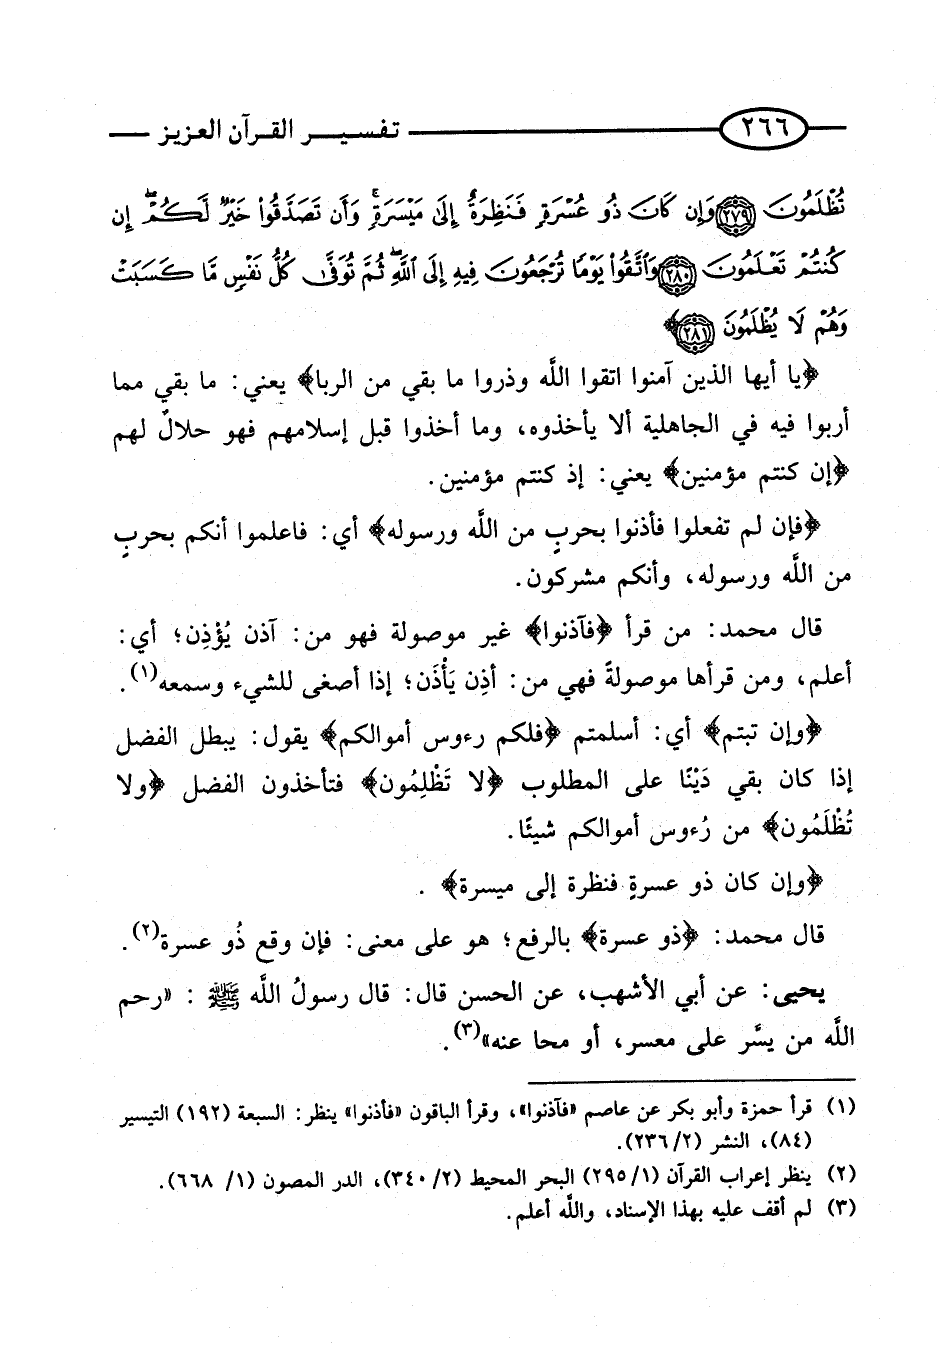 ٢٦٦ تفسير القرآن العزيز
تُظْلَمُونَ ﴿٢٧٩﴾ وَإِن كَانَ ذُو عُسْرَةٍ فَنَظِرَةٌ إِلَىٰ مَيْسَرَةٍ ۚ وَأَن تَصَدَّقُوا۟ خَيْرٌ لَّكُمْ ۖ إِن
كُنتُمْ تَعْلَمُونَ ﴿٢٨٠﴾ وَٱتَّقُوا۟ يَوْمًا تُرْجَعُونَ فِيهِ إِلَى ٱللَّهِ ۖ ثُمَّ تُوَفَّىٰ كُلُّ نَفْسٍ مَّا كَسَبَتْ
وَهُمْ لَا يُظْلَمُونَ ﴿٢٨١﴾﴾
﴿يا أيها الذين آمنوا اتقوا اللَّه وذروا ما بقي من الربا﴾ يعني: ما بقي مما
أربوا فيه في الجاهلية ألا يأخذوه، وما أخذوا قبل إسلامهم فهو حلالٌ لهم
﴿إن كنتم مؤمنين﴾ يعني: إذ كنتم مؤمنين.
﴿فإن لم تفعلوا فأذنوا بحربٍ من اللَّه ورسوله﴾ أي: فاعلموا أنكم بحربٍ
من اللَّه ورسوله، وأنكم مشركون.
قال محمد: من قرأ ﴿فآذنوا﴾ غير موصولة فهو من: آذن يُؤْذِن؛ أي:
أعلم، ومن قرأها موصولةً فهي من: أذِن يَأْذَن؛ إذا أصغى للشيء وسمعه(١).
﴿وإن تبتم﴾ أي: أسلمتم ﴿فلكم رءوس أموالكم﴾ يقول: يبطل الفضل
إذا كان بقي دَيْنًا على المطلوب ﴿لا تَظْلِمُون﴾ فتأخذون الفضل ﴿ولا
تُظْلَمُون﴾ من رُءوس أموالكم شيئًا.
﴿وإن كان ذو عسرةٍ فنظرة إلى ميسرة﴾ .
قال محمد: ﴿ذو عسرة﴾ بالرفع؛ هو على معنى: فإن وقع ذُو عسرة(٢).
يحيى: عن أبي الأشهب، عن الحسن قال: قال رسولُ اللَّه ﷺ : «رحم
اللَّه من يسَّر على معسر، أو محا عنه»(٣).
(١) قرأ حمزة وأبو بكر عن عاصم «فآذنوا»، وقرأ الباقون «فأذنوا» ينظر: السبعة (١٩٢) التيسير
(٨٤)، النشر (٢/٢٣٦).
(٢) ينظر إعراب القرآن (١/٢٩٥) البحر المحيط (٢/٣٤٠)، الدر المصون (١/ ٦٦٨).
(٣) لم أقف عليه بهذا الإسناد، واللَّه أعلم.